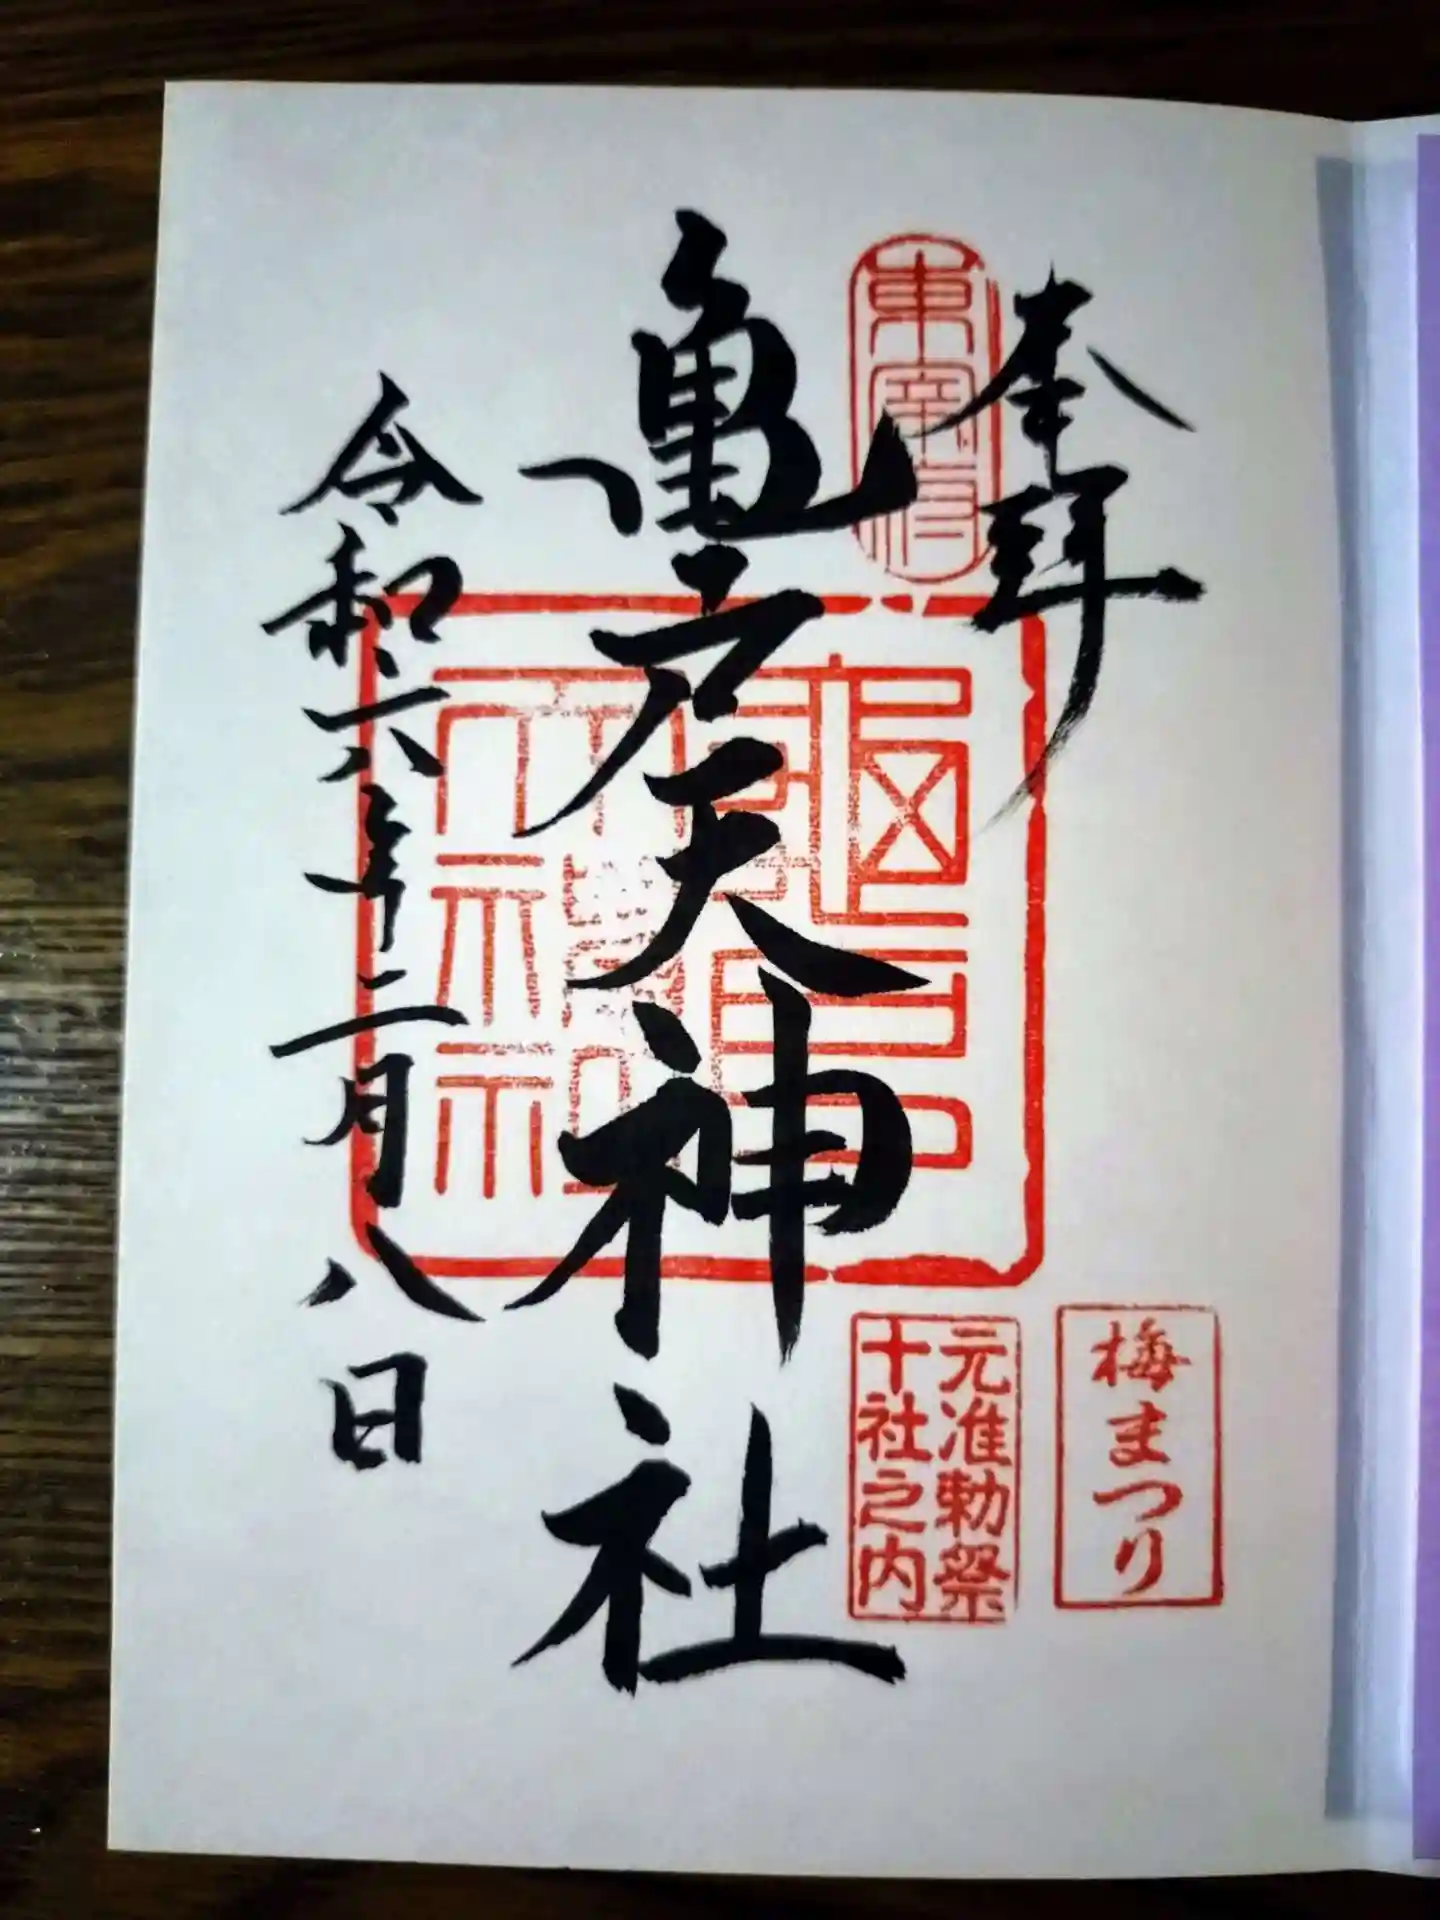 奉拝
東宰府
亀戸天神社
令和六年二月八日
梅まつり
元准勅祭
十社之内